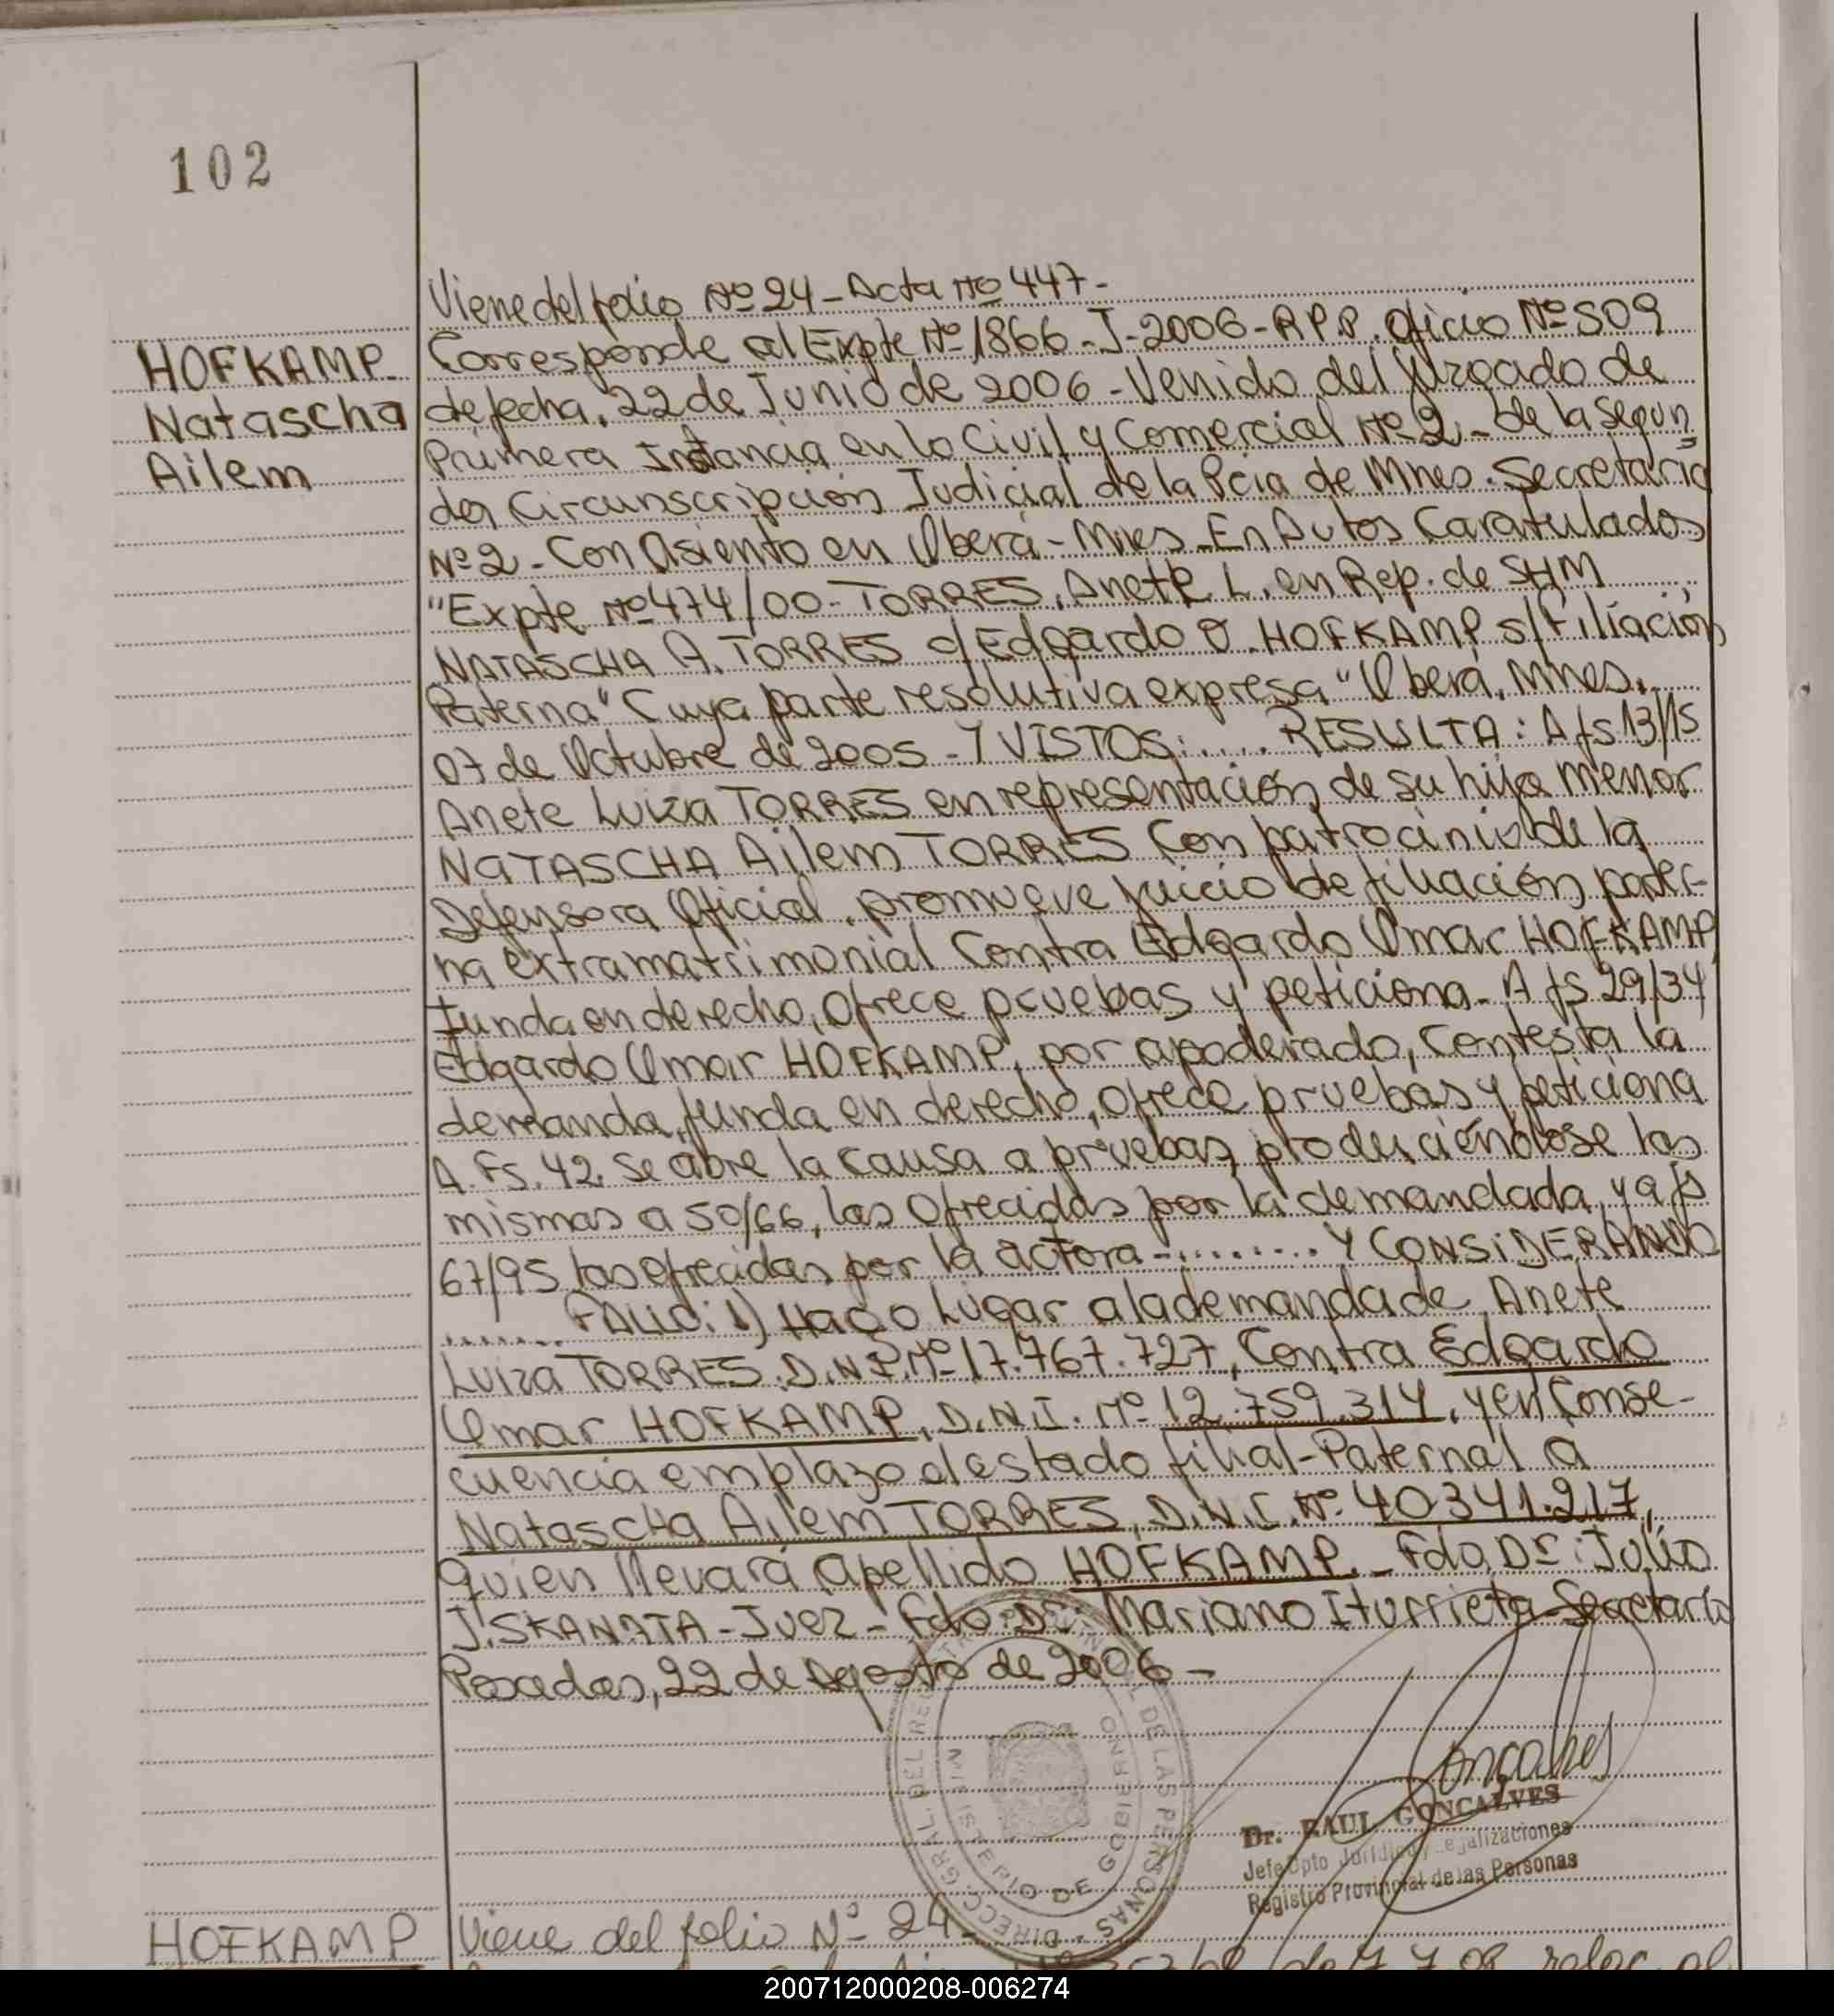 102
HOFKAMP
Natascha
Ailem
Viene del folio Nº 24 - Acta Nº 447 -
Corresponde al Expte Nº 1866 - J - 2006 - R P.P. Oficio Nº 509
de fecha, 22 de Junio de 2006 - Venido del Juzgado de
Primera Instancia en lo Civil y Comercial Nº 2 - de la Segun
da Circunscripción Judicial de la Pcia de Mnes. Secretaria
Nº 2 - Con Asiento en Oberá - Mnes - En Autos Caratulados
"Expte Nº 474/00 - TORRES, Anete L. en Rep. de SHM
NATASCHA A. TORRES c/ Edgardo O. HOFKAMP s/ Filiación
Paterna" Cuya parte resolutiva expresa "Oberá, Mnes.
07 de Octubre de 2005 - Y VISTOS: ..... RESULTA: A fs 13/15
Anete Luiza TORRES en representación de su hija menor
NATASCHA Ailem TORRES Con patrocinio de la
Defensora Oficial, promueve juicio de filiación pater-
na extramatrimonial Contra Edgardo Omar HOFKAMP,
funda en derecho, ofrece pruebas y peticiona - A fs 29/34
Edgardo Omar HOFKAMP, por apoderado, contesta la
demanda, funda en derecho, ofrece pruebas y peticiona
A. Fs. 42. Se abre la causa a pruebas, produciéndose las
mismas a 50/66, las ofrecidas por la demandada, y a fs
67/95 las ofrecidas por la actora - ......... Y CONSIDERANDO
........ FALLO: 1) Hago Lugar a la demanda de Anete
Luiza TORRES, D.N.I. Nº 17.767.727, Contra Edgardo
Omar HOFKAMP, D.N.I. Nº 12.759.314, y en Conse-
cuencia emplazo el estado filial - Paternal a
Natascha Ailem TORRES, D.N.I. Nº 40.341.217,
Quien llevará apellido HOFKAMP. - Fdo. Dr: Julio
J. SKANATA - Juez - Fdo. Dr: Mariano Iturrieta - Secretario
Posadas, 22 de Agosto de 2006 -
DIRECC. GRAL. DEL REGISTRO PROVINCIAL DE LAS PERSONAS
MINISTERIO DE GOBIERNO
Dr. RAUL GONCALVES
Jefe Dpto Juridico y Legalizaciones
Registro Provincial de las Personas
HOFKAMP
Viene del folio Nº 24 -
200712000208-006274